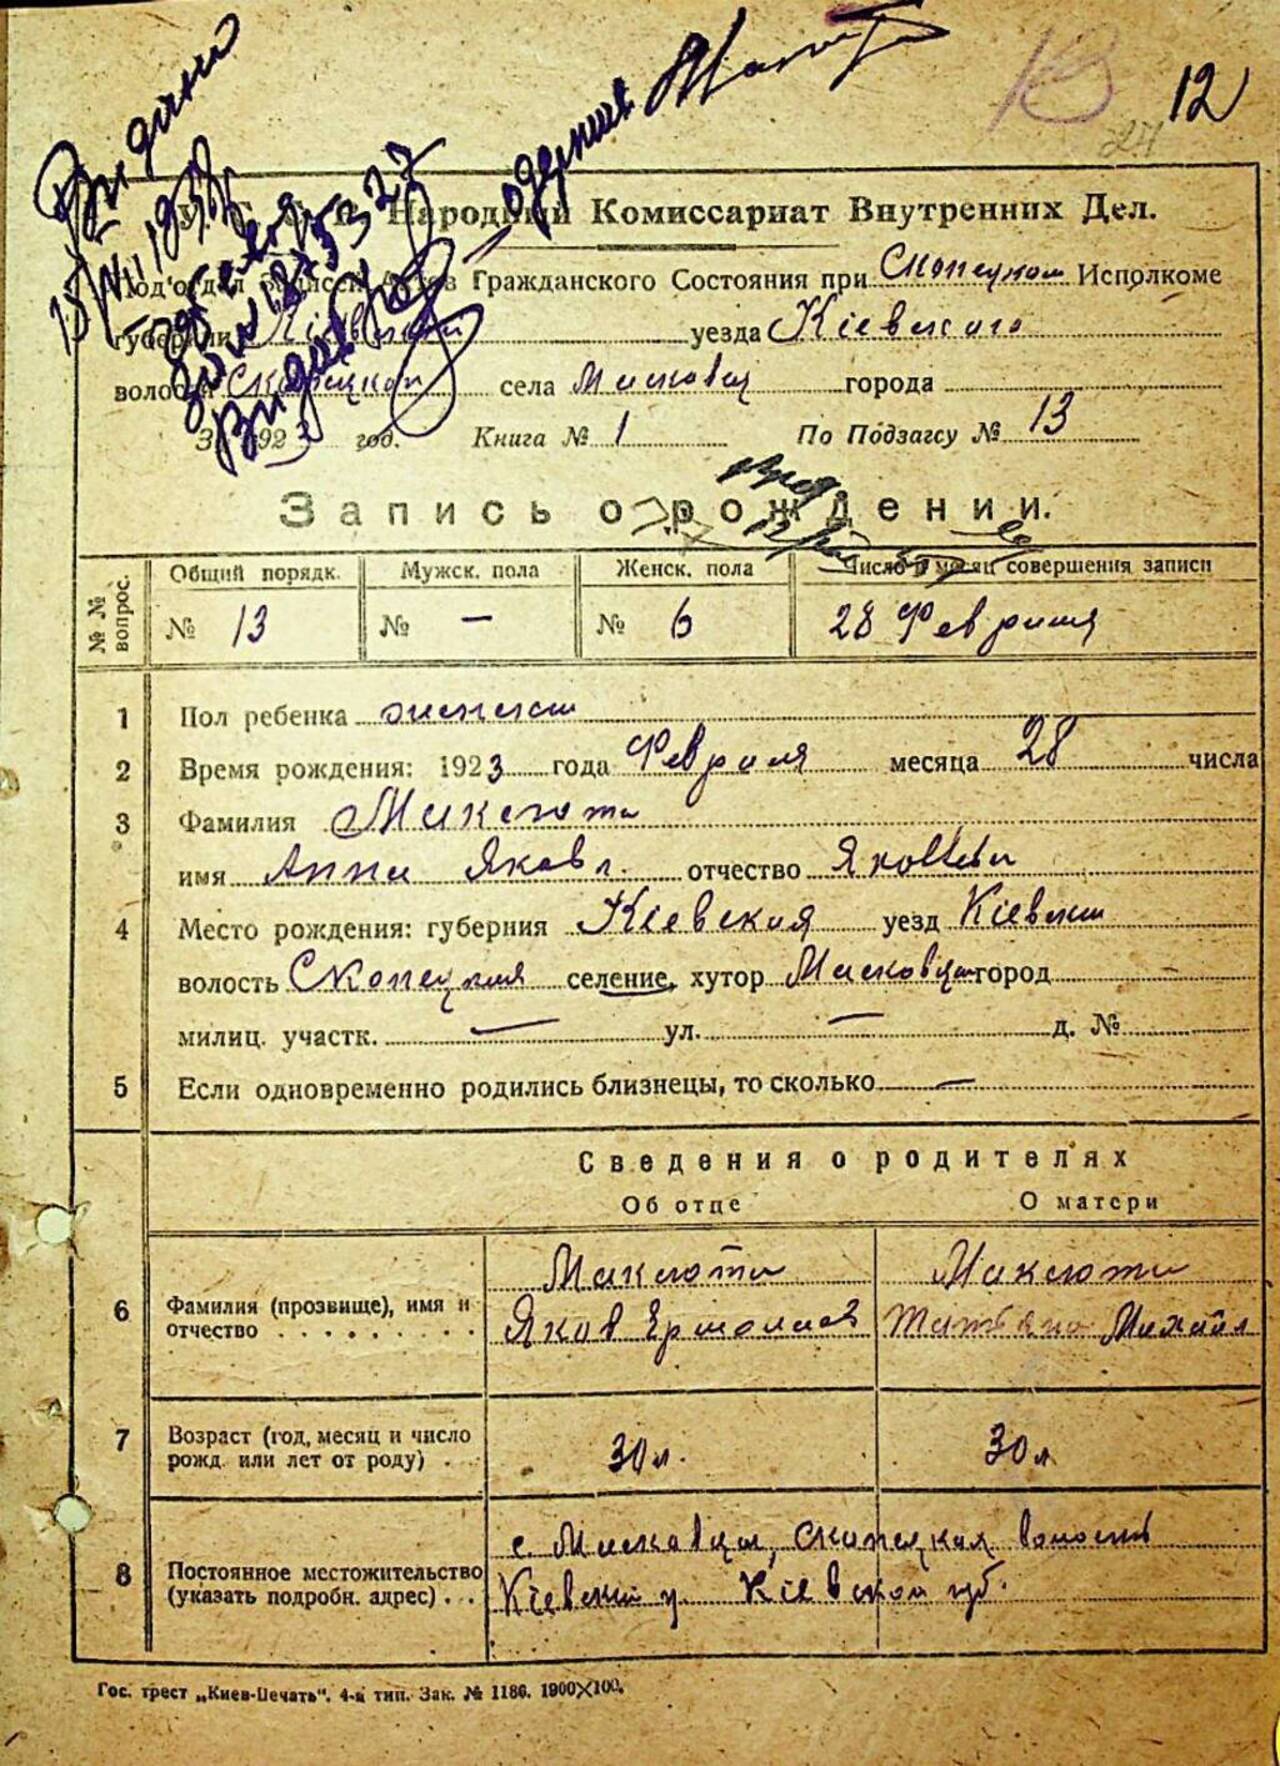 12
Народный Комиссариат Внутренних Дел.
Под'отдел Записей Актов Гражданского Состояния при Скопецком Исполкоме
губернии Кіевской уезда Кіевского
волости Скопецкой села Масковец города
За 1923 год. Книга № 1 По Подзагсу № 13
Запись о рождении.
№ № вопрос. Общий порядк. Мужск. пола Женск. пола Число и месяц совершения записи
№ 13 № — № 6 28 Февраля
1 Пол ребенка женск
2 Время рождения: 1923 года Февраля месяца 28 числа
3 Фамилия Максюта
имя Анна Яковл. отчество Яковлевн
4 Место рождения: губерния Кіевская уезд Кіевский
волость Скопецкая селение, хутор Масковцы город
милиц. участк. — ул. — д. №
5 Если одновременно родились близнецы, то сколько —
Сведения о родителях
Об отце О матери
6 Фамилия (прозвище), имя и отчество Максюта Максюта
Яков Ермолаев Татьяна Михайл
7 Возраст (год, месяц и число рожд. или лет от роду) 30 л. 30 л
8 Постоянное местожительство (указать подробн. адрес) с. Масковцы, Скопецкая волость
Кіевский у. Кіевской губ.
Гос. трест „Киев-Печать". 4-я тип. Зак. № 1186. 1900X100.